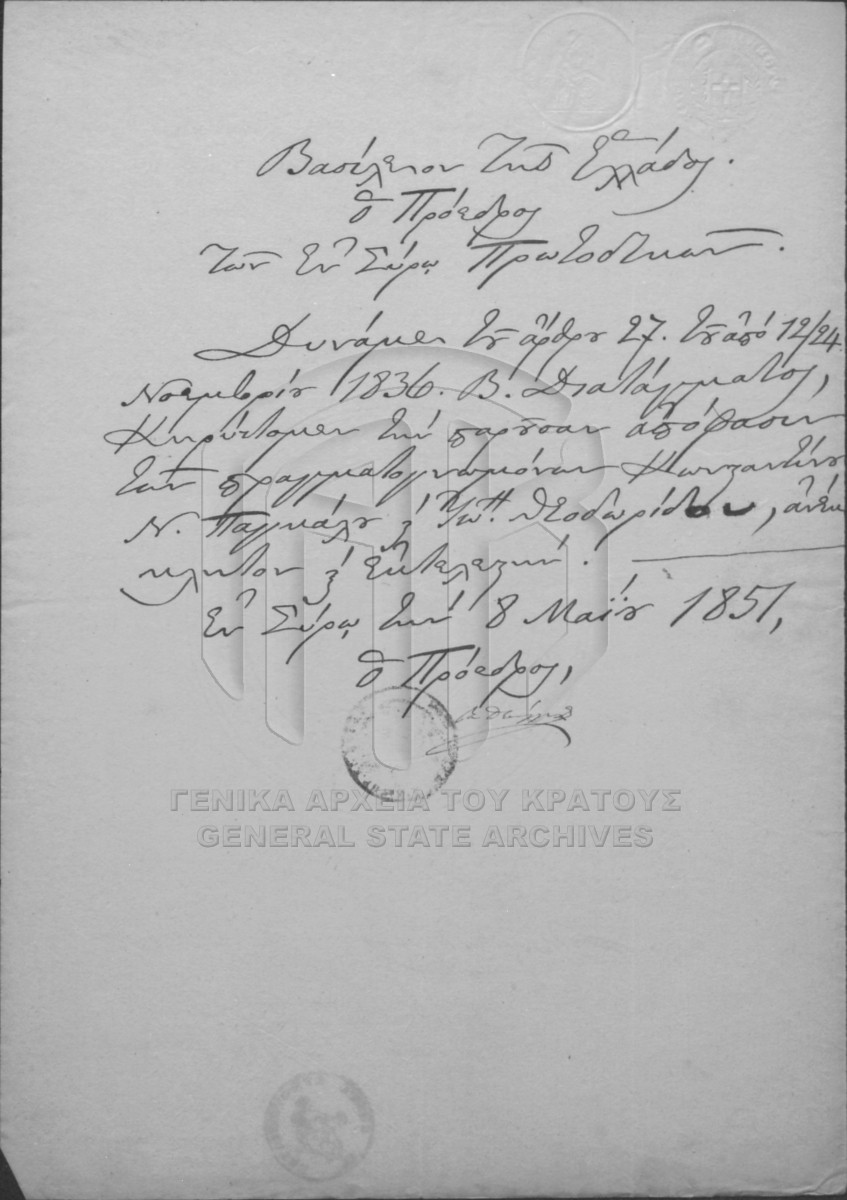 Βασίλειον Της Ελλάδος.
Ὁ Πρόεδρος
Των ἐν Σύρῳ Πρωτοδικῶν.
Δυνάμει τοῦ ἄρθρου 27. τοῦ ἀπό 12/24
Νοεμβρίου 1836. Β. Διατάγματος,
Κηρύττομεν τήν παροῦσαν ἀπόφασιν
τῶν πραγματογνωμόνων Κωνσταντίνου
Ν. Παγκάλου καί Ἰω. Π. Θεοδωρίδου, ἀνέκ
κλητον καί ἐκτελεστήν.
Ἐν Σύρῳ τήν 8 Μαΐου 1851,
Ὁ Πρόεδρος,
ΓΕΝΙΚΑ ΑΡΧΕΙΑ ΤΟΥ ΚΡΑΤΟΥΣ
GENERAL STATE ARCHIVES